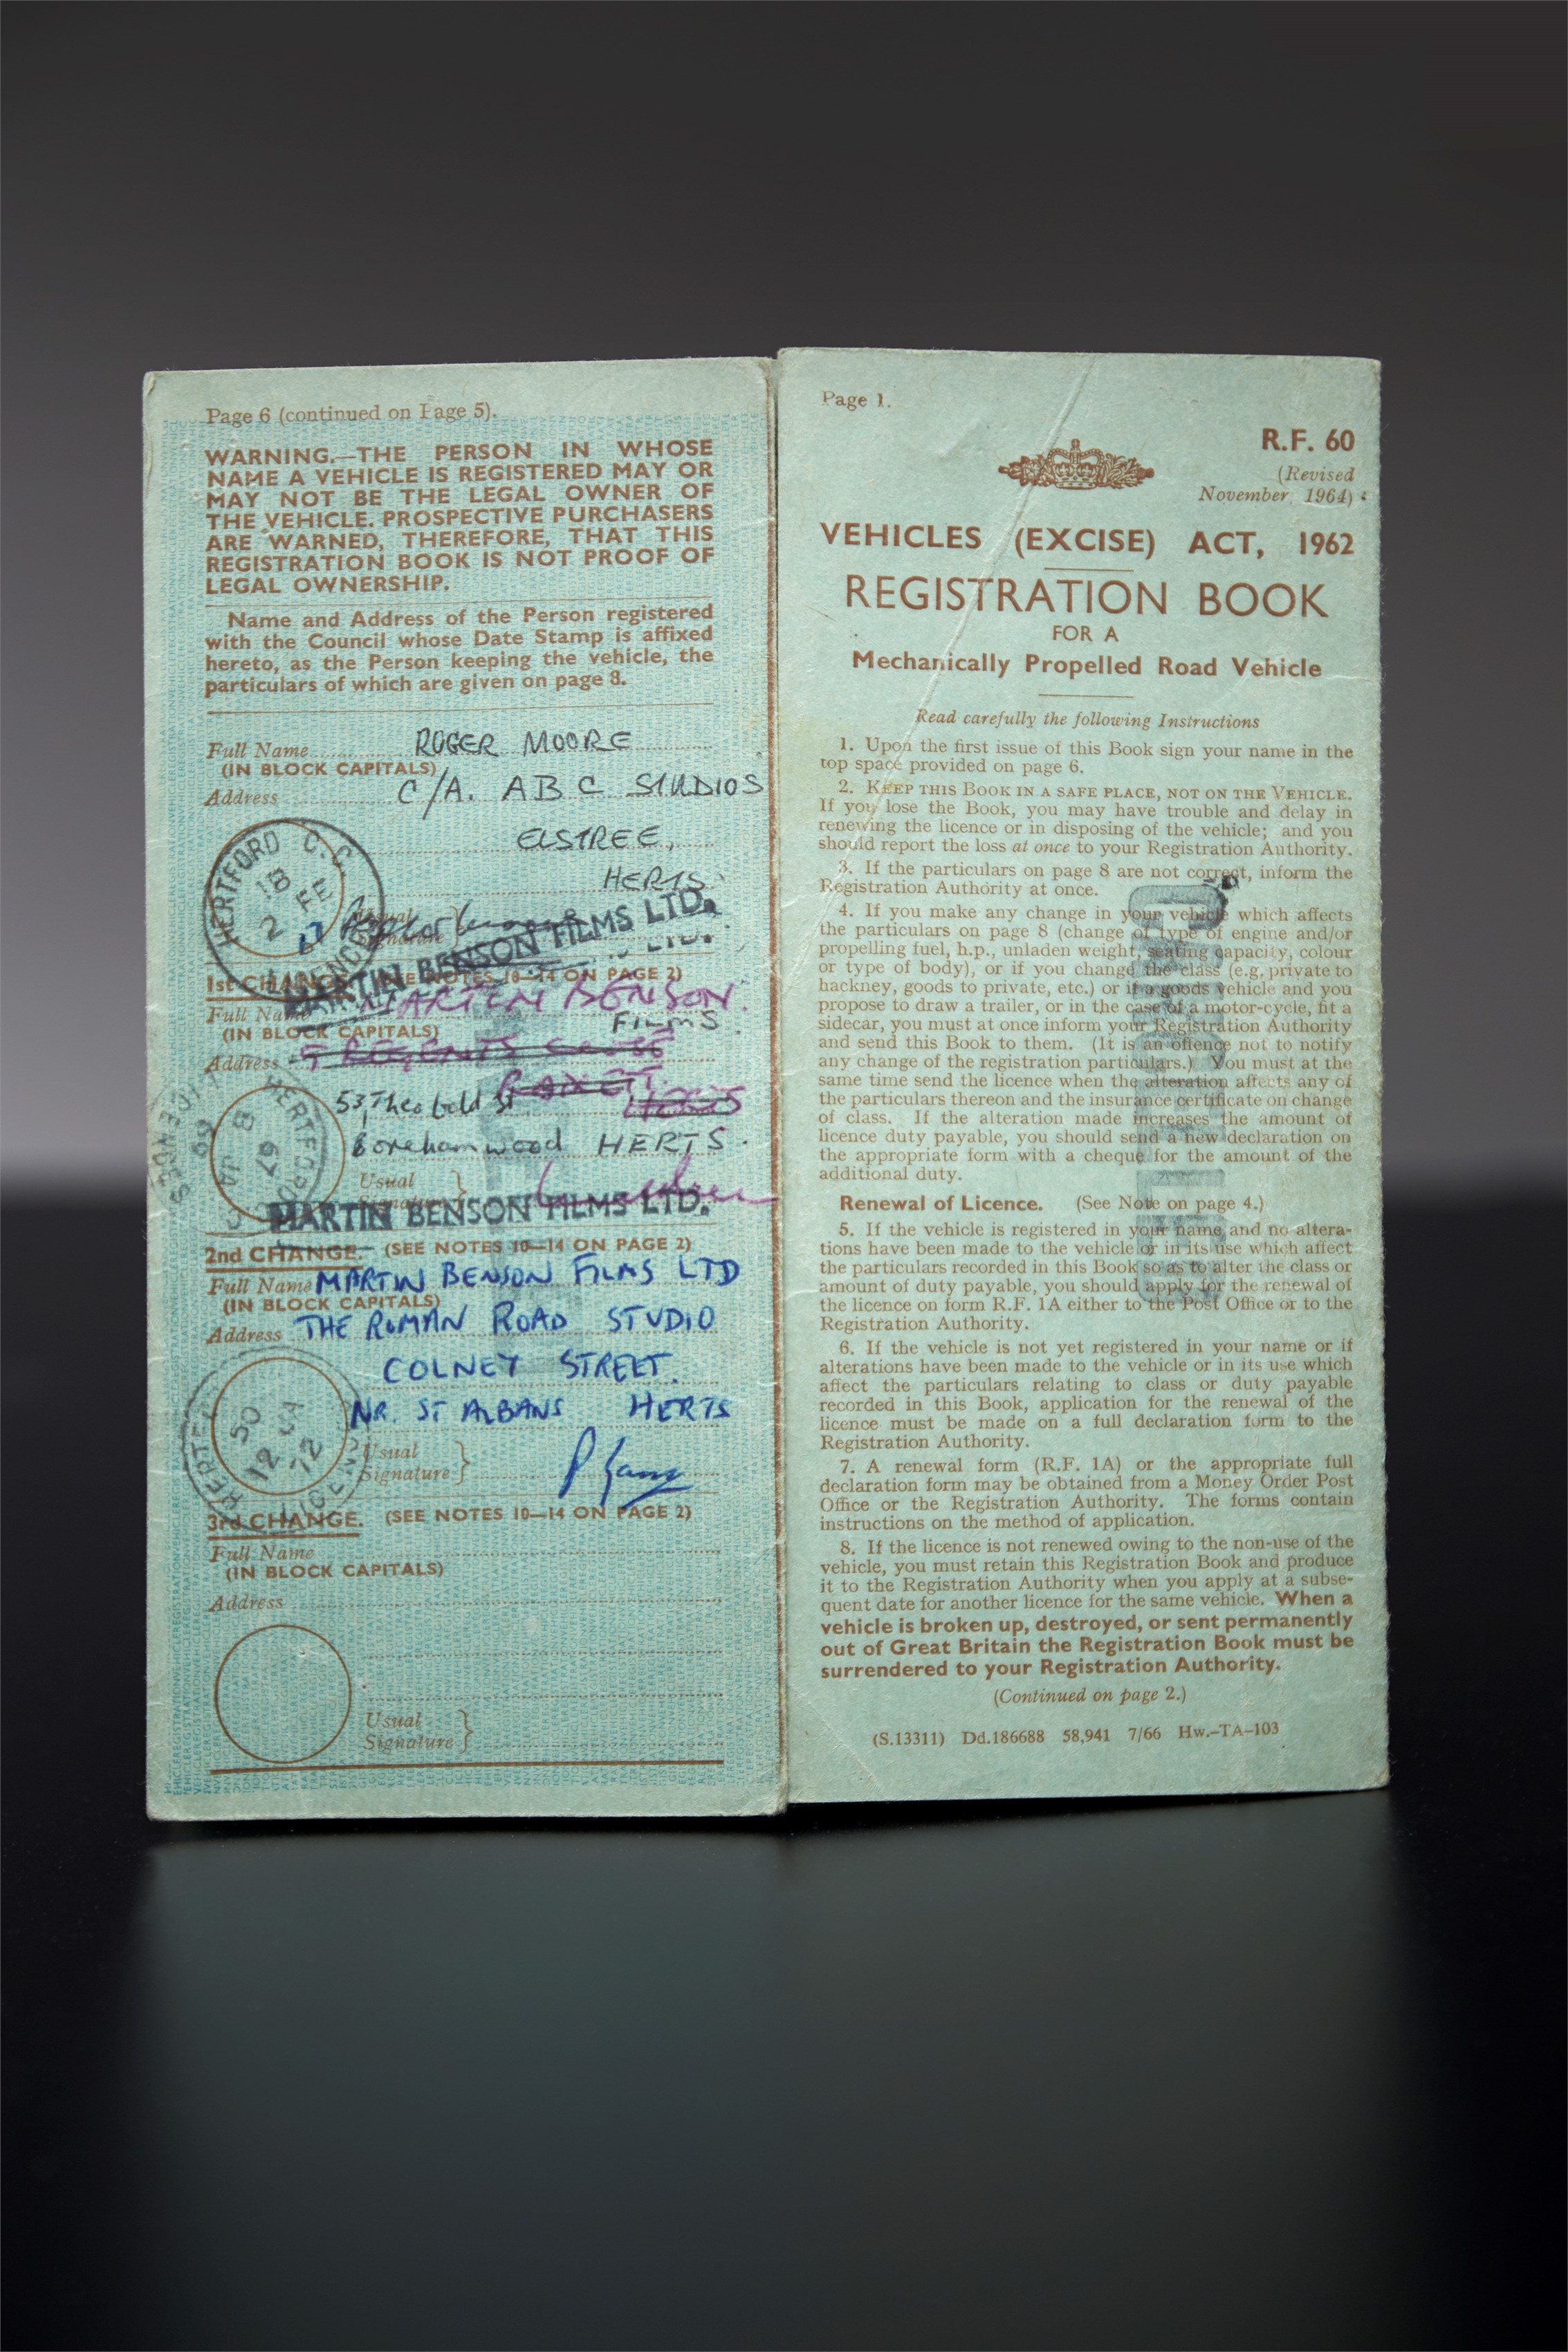 Page 6 (continued on Page 5).
WARNING.—THE PERSON IN WHOSE
NAME A VEHICLE IS REGISTERED MAY OR
MAY NOT BE THE LEGAL OWNER OF
THE VEHICLE. PROSPECTIVE PURCHASERS
ARE WARNED, THEREFORE, THAT THIS
REGISTRATION BOOK IS NOT PROOF OF
LEGAL OWNERSHIP.
Name and Address of the Person registered
with the Council whose Date Stamp is affixed
hereto, as the Person keeping the vehicle, the
particulars of which are given on page 8.
Full Name ROGER MOORE
(IN BLOCK CAPITALS)
Address C/A. ABC STUDIOS
ELSTREE,
HERTS.
HERTFORD C.C.
18
2 FE
Usual
Signature
MARTIN BENSON FILMS LTD.
LTD.
1st CHANGE. (SEE NOTES 10—14 ON PAGE 2)
Full Name MARTIN BENSON
(IN BLOCK CAPITALS) FILMS
Address
53, Theobald St
Borehamwood HERTS.
HERTFORD
67
Usual
Signature
MARTIN BENSON FILMS LTD.
2nd CHANGE. (SEE NOTES 10—14 ON PAGE 2)
Full Name MARTIN BENSON FILMS LTD
(IN BLOCK CAPITALS)
Address THE ROMAN ROAD STUDIO
COLNEY STREET.
NR. ST ALBANS HERTS
50
12 JA
72
Usual
Signature
3rd CHANGE. (SEE NOTES 10—14 ON PAGE 2)
Full Name
(IN BLOCK CAPITALS)
Address
Usual
Signature
Page 1.
R.F. 60
(Revised
November, 1964)
VEHICLES (EXCISE) ACT, 1962
REGISTRATION BOOK
FOR A
Mechanically Propelled Road Vehicle
Read carefully the following Instructions
1. Upon the first issue of this Book sign your name in the
top space provided on page 6.
2. KEEP THIS BOOK IN A SAFE PLACE, NOT ON THE VEHICLE.
If you lose the Book, you may have trouble and delay in
renewing the licence or in disposing of the vehicle; and you
should report the loss at once to your Registration Authority.
3. If the particulars on page 8 are not correct, inform the
Registration Authority at once.
4. If you make any change in your vehicle which affects
the particulars on page 8 (change of type of engine and/or
propelling fuel, h.p., unladen weight, seating capacity, colour
or type of body), or if you change the class (e.g. private to
hackney, goods to private, etc.) or if a goods vehicle and you
propose to draw a trailer, or in the case of a motor-cycle, fit a
sidecar, you must at once inform your Registration Authority
and send this Book to them. (It is an offence not to notify
any change of the registration particulars.) You must at the
same time send the licence when the alteration affects any of
the particulars thereon and the insurance certificate on change
of class. If the alteration made increases the amount of
licence duty payable, you should send a new declaration on
the appropriate form with a cheque for the amount of the
additional duty.
Renewal of Licence. (See Note on page 4.)
5. If the vehicle is registered in your name and no altera-
tions have been made to the vehicle or in its use which affect
the particulars recorded in this Book so as to alter the class or
amount of duty payable, you should apply for the renewal of
the licence on form R.F. 1A either to the Post Office or to the
Registration Authority.
6. If the vehicle is not yet registered in your name or if
alterations have been made to the vehicle or in its use which
affect the particulars relating to class or duty payable
recorded in this Book, application for the renewal of the
licence must be made on a full declaration form to the
Registration Authority.
7. A renewal form (R.F. 1A) or the appropriate full
declaration form may be obtained from a Money Order Post
Office or the Registration Authority. The forms contain
instructions on the method of application.
8. If the licence is not renewed owing to the non-use of the
vehicle, you must retain this Registration Book and produce
it to the Registration Authority when you apply at a subse-
quent date for another licence for the same vehicle. When a
vehicle is broken up, destroyed, or sent permanently
out of Great Britain the Registration Book must be
surrendered to your Registration Authority.
(Continued on page 2.)
(S.13311) Dd.186688 58,941 7/66 Hw.-TA-103